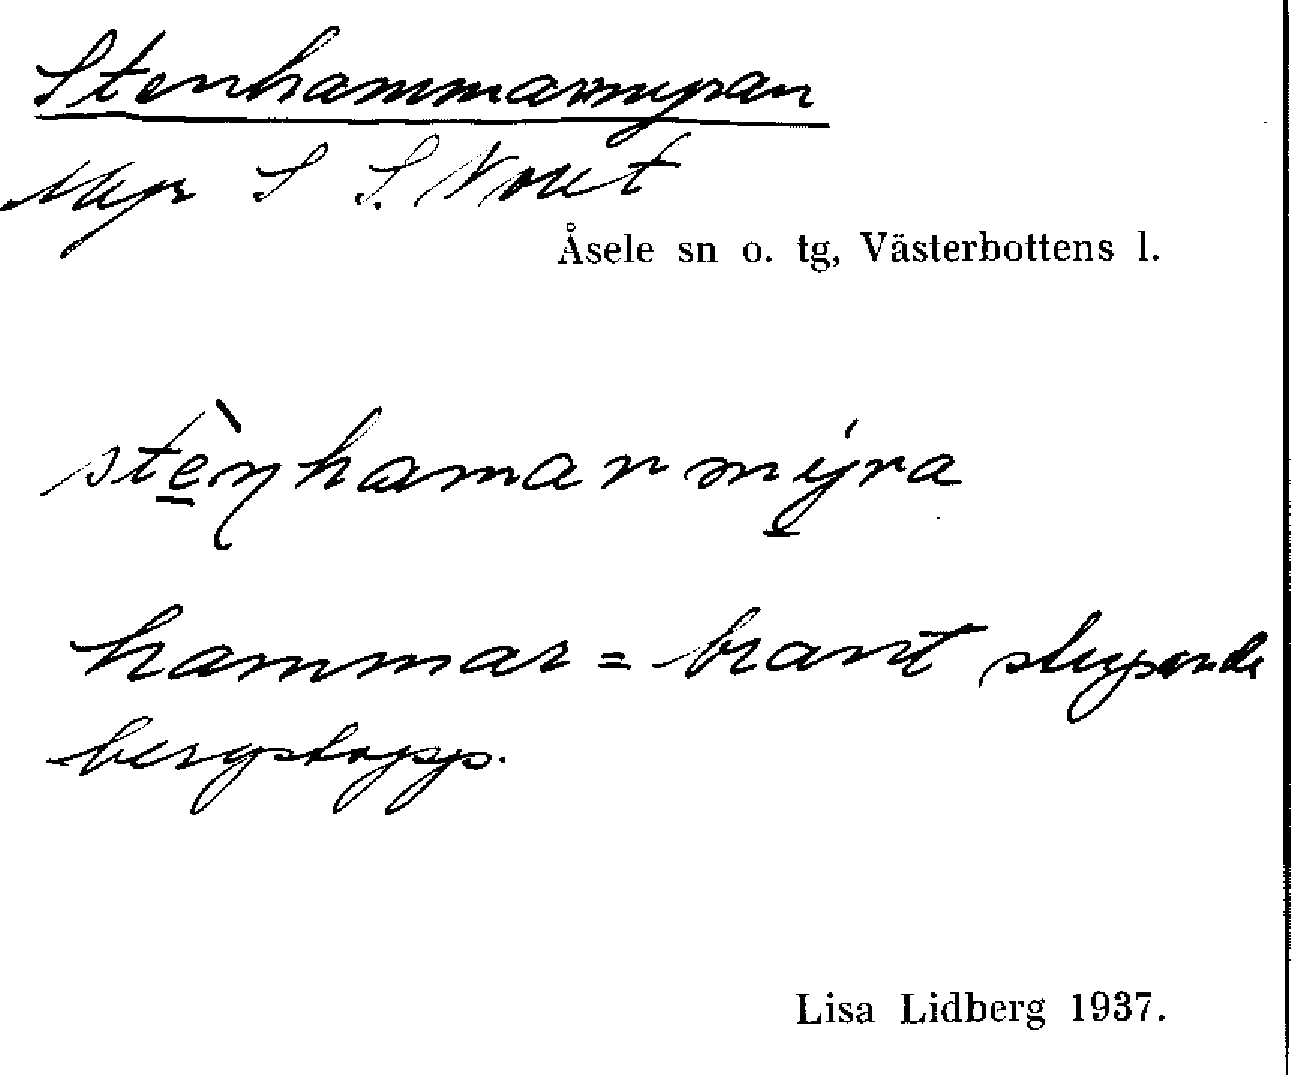 Stenhammarmyran
Myr S S. Nout
Åsele sn o. tg, Västerbottens l.
stèn̠hamar mýra
hammar = brant stupande
bergstopp.
Lisa Lidberg 1937.